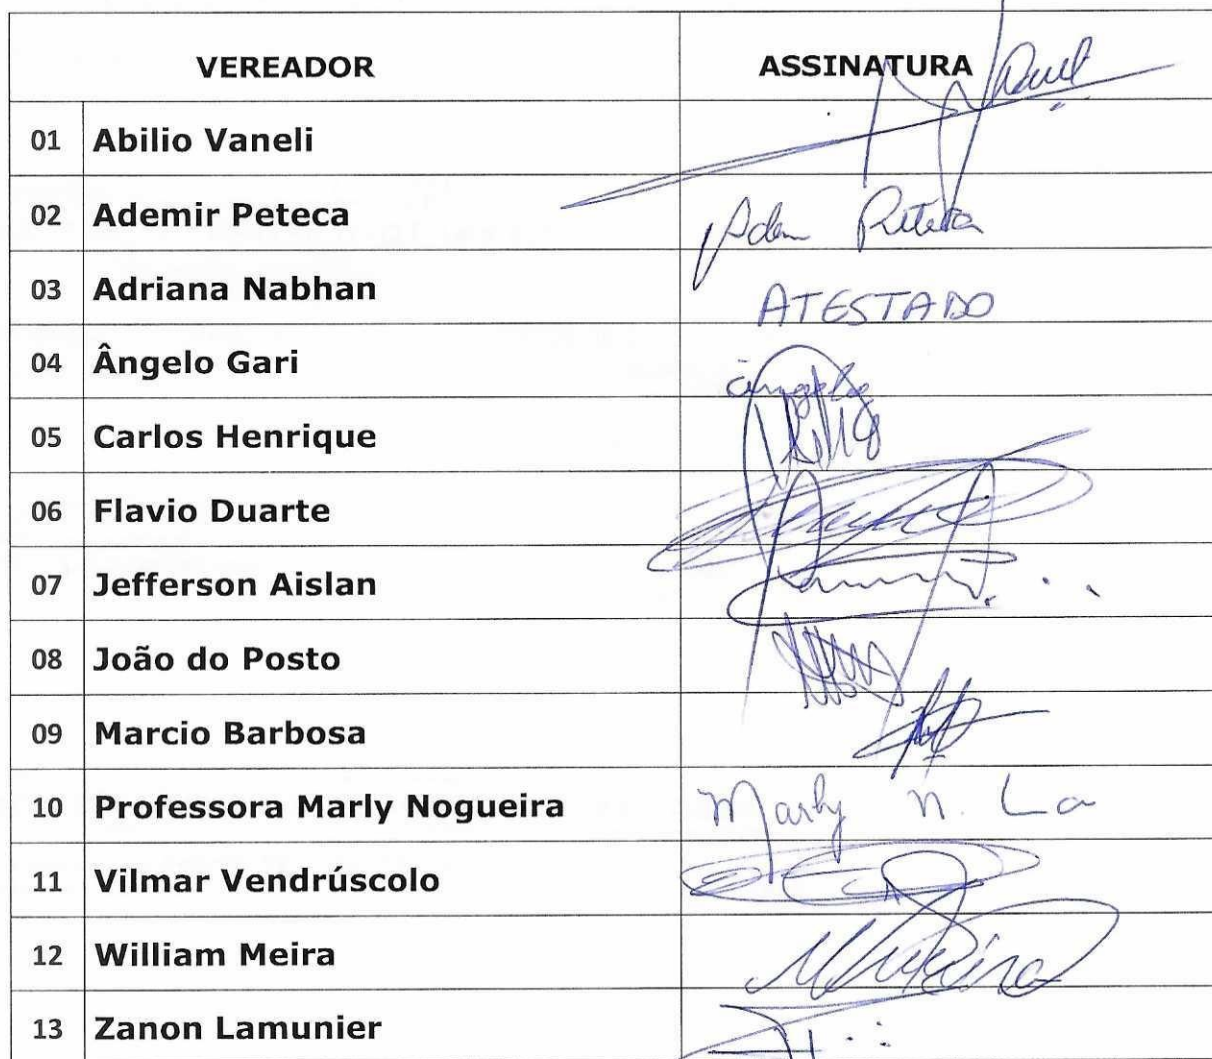 VEREADOR ASSINATURA
01 Abilio Vaneli
02 Ademir Peteca Adem Peteca
03 Adriana Nabhan ATESTADO
04 Ângelo Gari
05 Carlos Henrique
06 Flavio Duarte
07 Jefferson Aislan
08 João do Posto
09 Marcio Barbosa
10 Professora Marly Nogueira Marly N.
11 Vilmar Vendrúscolo
12 William Meira
13 Zanon Lamunier